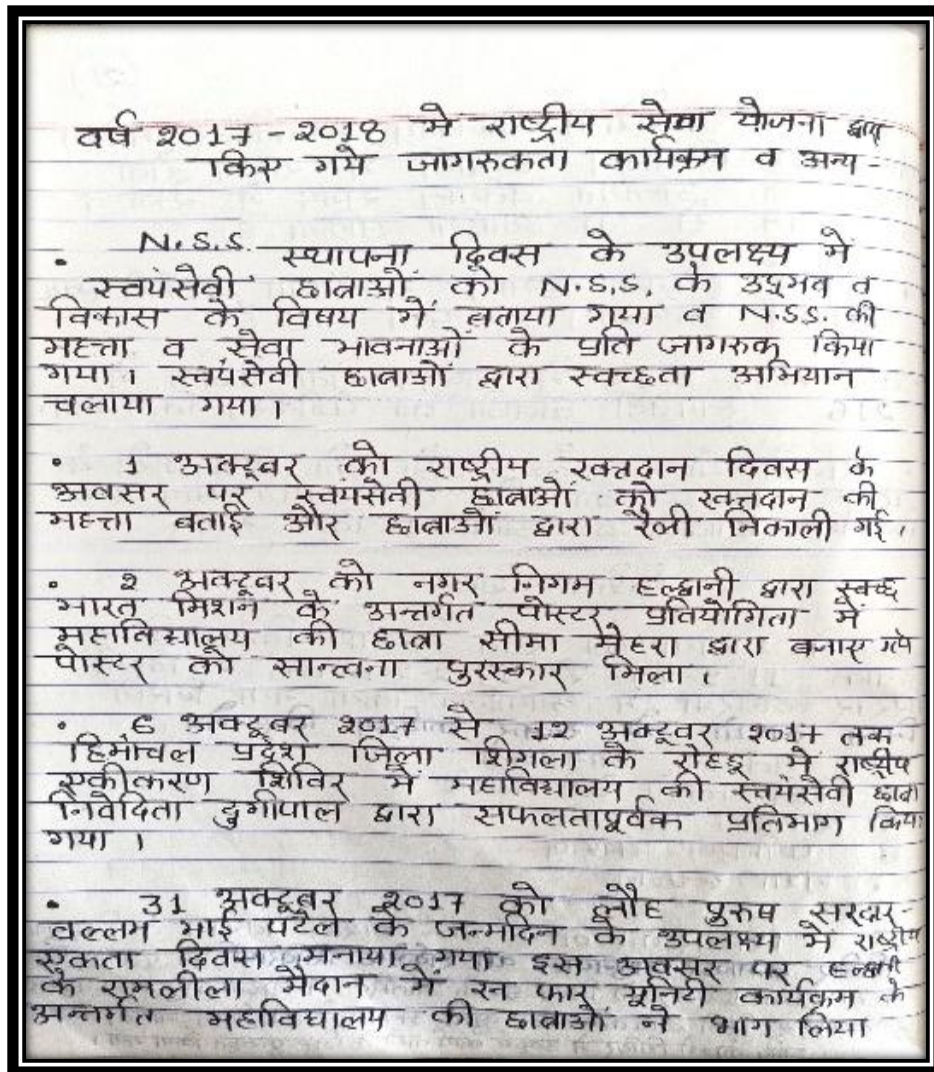 वर्ष 2017-2018 मे राष्ट्रीय सेवा योजना द्वारा
किए गये जागरुकता कार्यक्रम व अन्य -
• N.S.S. स्थापना दिवस के उपलक्ष्य में
स्वयंसेवी छात्राओं को N.S.S. के उद्गभव व
विकास के विषय में बताया गया व N.S.S. की
महत्ता व सेवा भावनाओं के प्रति जागरुक किया
गया। स्वयंसेवी छात्राओं द्वारा स्वच्छता अभियान
चलाया गया।
• 1 अक्टूबर को राष्ट्रीय रक्तदान दिवस के
अवसर पर स्वयंसेवी छात्राओं को रक्तदान की
महत्ता बताई और छात्राओं द्वारा रैली निकाली गई।
• 2 अक्टूबर को नगर निगम हल्द्वानी द्वारा स्वच्छ
भारत मिशन के अन्तर्गत पोस्टर प्रतियोगिता में
महाविद्यालय की छात्रा सीमा मेहरा द्वारा बनाए गये
पोस्टर को सान्त्वना पुरस्कार मिला।
• 6 अक्टूबर 2017 से 12 अक्टूबर 2017 तक
हिमांचल प्रदेश जिला शिमला के रोहडू मे राष्ट्रीय
एकीकरण शिविर में महाविद्यालय की स्वयंसेवी छात्रा
निवेदिता दुर्गापाल द्वारा सफलतापूर्वक प्रतिभाग किया
गया।
• 31 अक्टूबर 2017 को लौह पुरुष सरदार
वल्लभ भाई पटेल के जन्मदिन के उपलक्ष्य मे राष्ट्रीय
एकता दिवस मनाया गया इस अवसर पर हल्द्वानी
के रामलीला मैदान में रन फार यूनिटी कार्यक्रम के
अन्तर्गत महाविद्यालय की छात्राओं ने भाग लिया